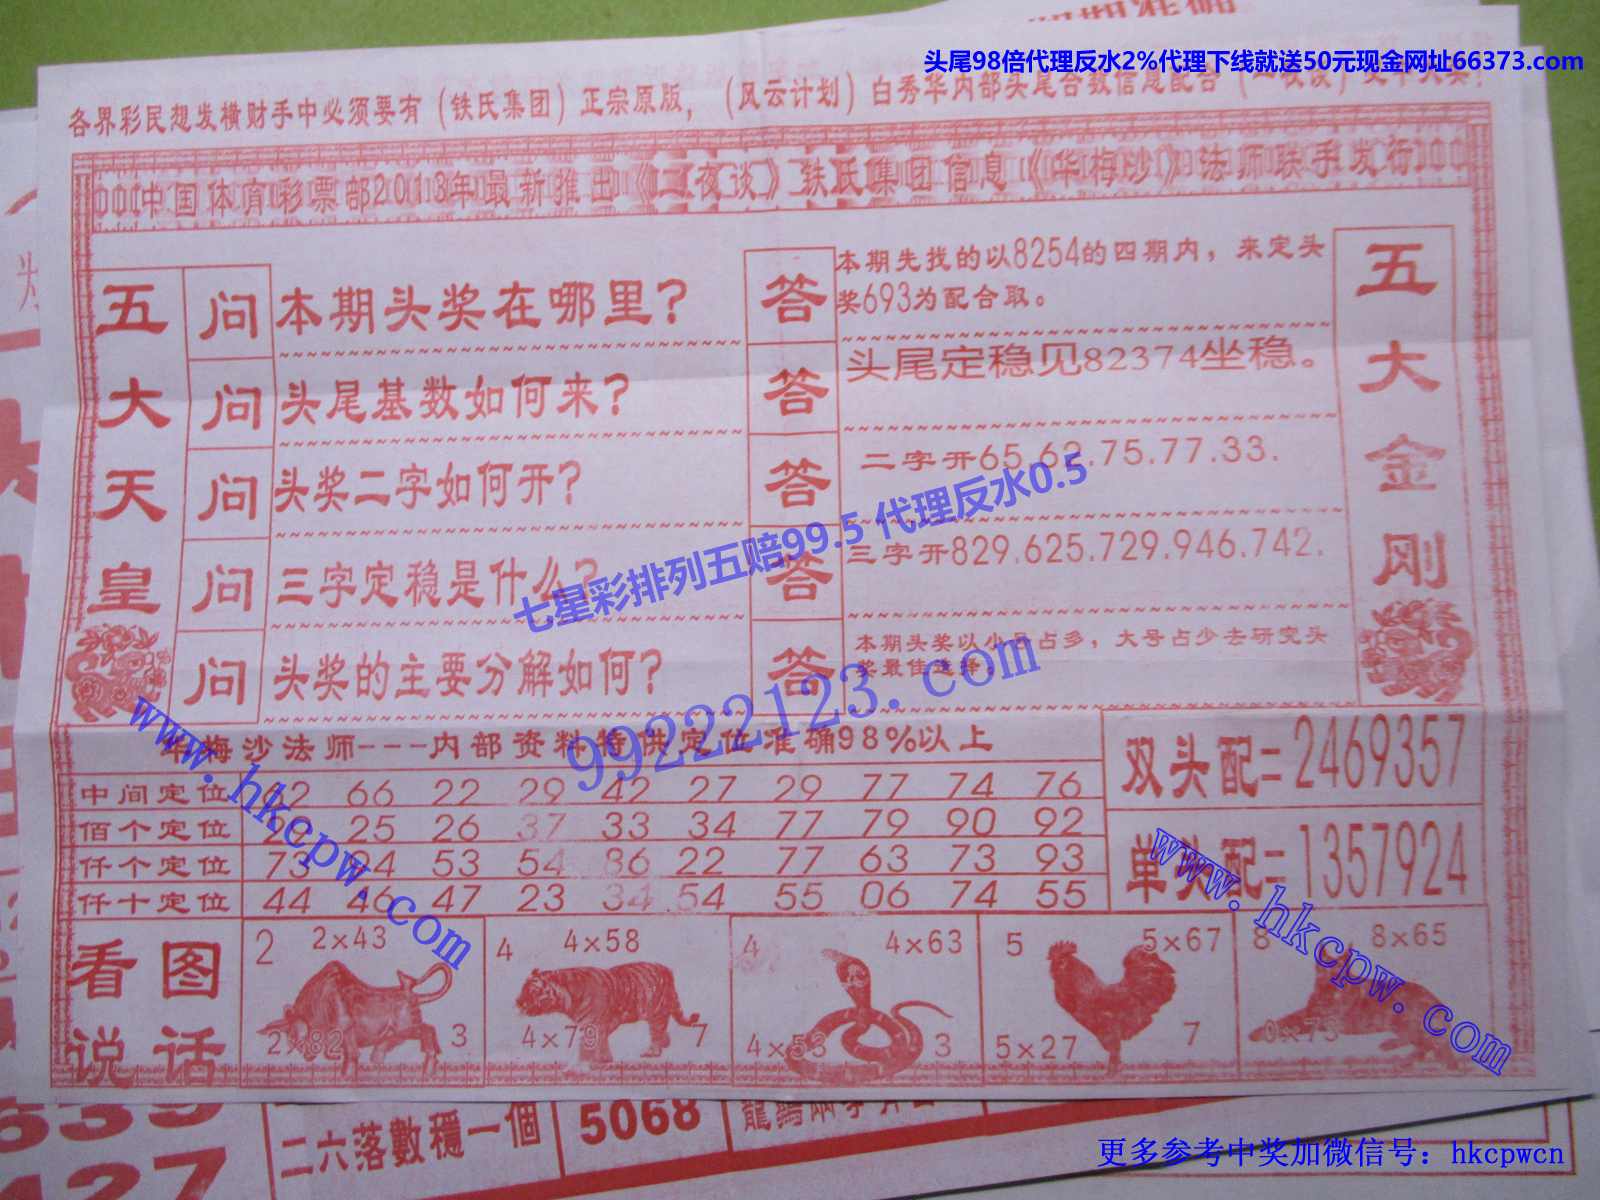 头尾98倍代理反水2%代理下线就送50元现金网址66373.com
各界彩民想发横财手中必须要有(铁氏集团)正宗原版,(风云计划)白秀华内部头尾合数信息配合
中国体育彩票部2013年最新推出《二夜谈》铁氏集团信息《华梅沙》法师联手发行
五大天皇
五大金刚
问 本期头奖在哪里?
答 本期先找的以8254的四期内,来定头
奖693为配合取。
问 头尾基数如何来?
答 头尾定稳见82374坐稳。
问 头奖二字如何开?
答 二字开65.62.75.77.33.
问 三字定稳是什么?
答 三字开829.625.729.946.742.
问 头奖的主要分解如何?
答 本期头奖以小号占多,大号占少去研究头
奖最佳选择。
七星彩排列五赔99.5 代理反水0.5
99222123.com
www.hkcpw.com
www.hkcpw.com
华梅沙法师---内部资料特供定位准确98%以上
中间定位 66 22 29 42 27 29 77 74 76
佰个定位 25 26 37 33 34 77 79 90 92
仟个定位 73 94 53 54 86 22 77 63 73 93
仟十定位 44 46 47 23 34 54 55 06 74 55
双头配=2469357
单头配=1357924
看图说话
2 2x43
2x82 3
4 4x58
4x79 7
4 4x63
4x53 3
5 5x67
5x27 7
8 8x65
二六落數穩一個
5068
更多参考中奖加微信号:hkcpwcn